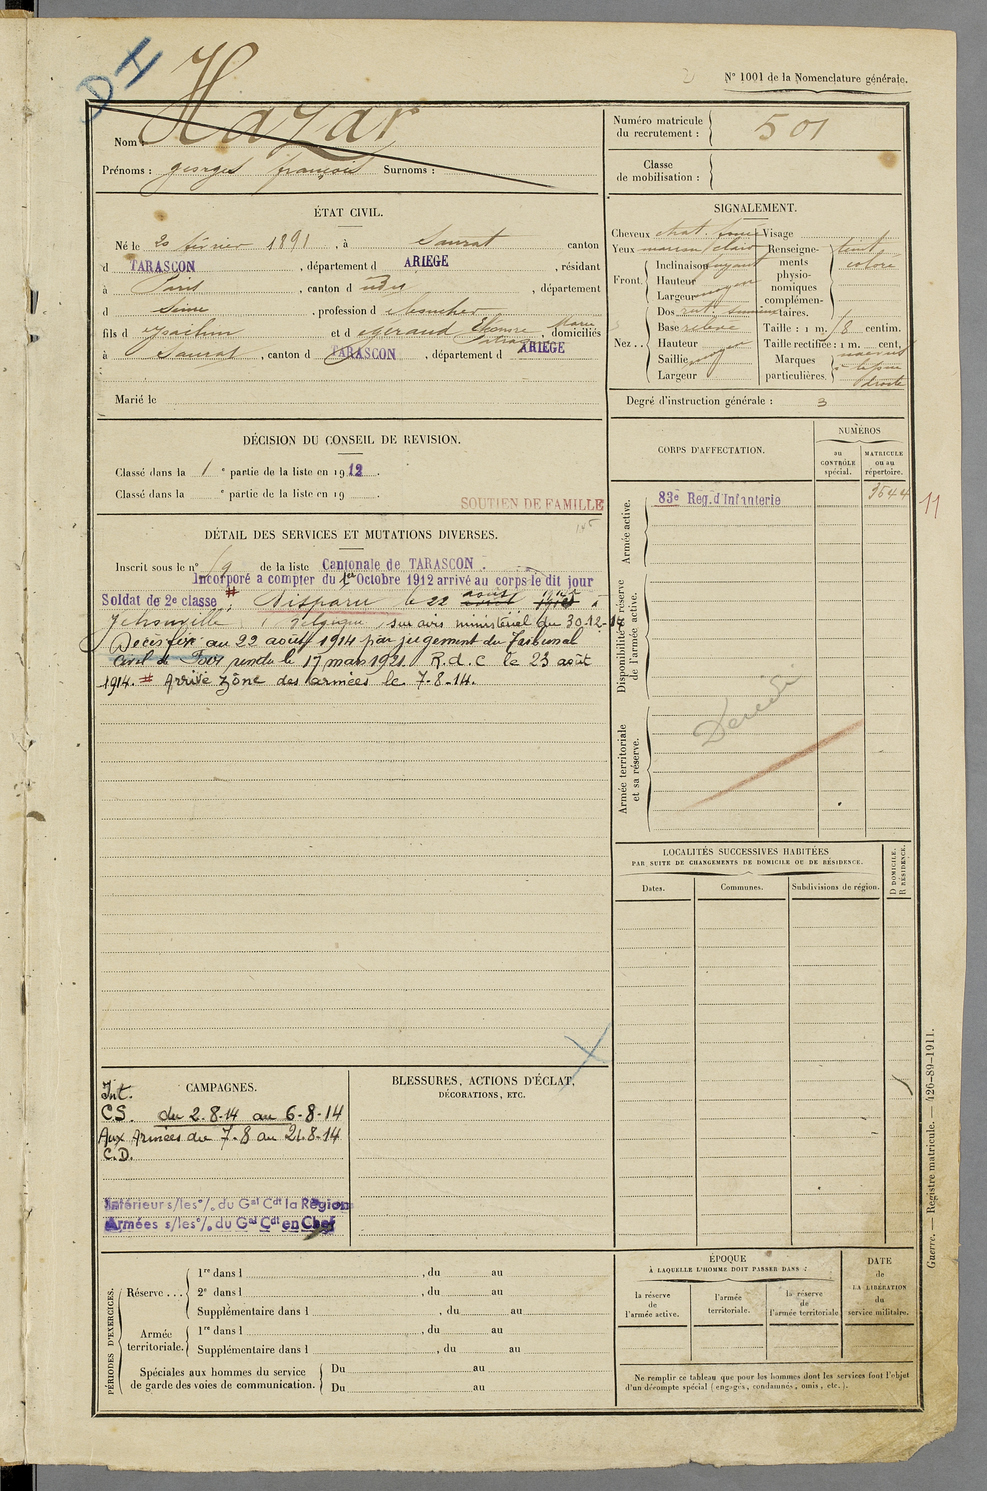 DH
N° 1001 de la Nomenclature générale.
Nom : Hazar
Prénoms : georges françois Surnoms :
Numéro matricule du recrutement : 501
Classe de mobilisation :
ÉTAT CIVIL.
Né le 20 février 1891, à Saurat canton
d TARASCON, département d ARIEGE, résidant
à Paris, canton d udu, département
d Seine, profession d boucher
fils d Joachim et d Marie domiciliés
à Saurat, canton d TARASCON, département d ARIEGE
Marié le
SIGNALEMENT.
Cheveux chat. foncé Visage
Yeux marron clair Renseigne-
ments
physio-
nomiques
complémen-
taires. teint coloré
Front. Inclinaison fuyant
Hauteur moyen
Largeur
Nez.. Dos rect. sinueux
Base relevé
Hauteur
Saillie
Largeur
Taille : 1 m. 68 centim.
Taille rectifiée : 1 m. cent.
Marques
particulières. droite
Degré d'instruction générale : 3
DÉCISION DU CONSEIL DE REVISION.
Classé dans la 1 e partie de la liste en 1912.
Classé dans la e partie de la liste en 19
SOUTIEN DE FAMILLE
145
DÉTAIL DES SERVICES ET MUTATIONS DIVERSES.
Inscrit sous le n° 69 de la liste Cantonale de TARASCON.
Incorporé a compter du 1er Octobre 1912 arrivé au corps le dit jour
Soldat de 2e classe ; # Disparu le 22 août 1914 à
Jehonville (Belgique) sur avis ministériel du 30-12-14
Décès fixé au 22 août 1914 par jugement du Tribunal
civil de Foix rendu le 17 mars 1921. R.d.C le 23 août
1914. # Arrivé zône des armées le 7-8-14.
CORPS D'AFFECTATION.
NUMÉROS
au CONTRÔLE spécial.
MATRICULE ou au répertoire.
Armée active.
83e Reg. d'Infanterie 3644
11
Disponibilité et réserve de l'armée active.
Armée territoriale et sa réserve.
LOCALITÉS SUCCESSIVES HABITÉES
PAR SUITE DE CHANGEMENTS DE DOMICILE OU DE RÉSIDENCE.
Dates.
Communes.
Subdivisions de région.
D DOMICILE.
R RÉSIDENCE.
CAMPAGNES.
Int.
C.S. du 2-8-14 au 6-8-14
Aux Armées du 7-8 au 21-8-14
C.D.
Intérieur s/les °/. du Gal Cdt la Région
Armées s/les °/. du Gal Cdt en Chef
BLESSURES, ACTIONS D'ÉCLAT,
DÉCORATIONS, ETC.
PÉRIODES D'EXERCICES.
Réserve ... 1re dans l , du au
2e dans l , du au
Supplémentaire dans l , du au
Armée territoriale. 1re dans l , du au
Supplémentaire dans l , du au
Spéciales aux hommes du service
de garde des voies de communication. Du au
Du au
ÉPOQUE
À LAQUELLE L'HOMME DOIT PASSER DANS :
la réserve de l'armée active.
l'armée territoriale.
la réserve de l'armée territoriale
DATE de LA LIBÉRATION du service militaire.
Ne remplir ce tableau que pour les hommes dont les services font l'objet
d'un décompte spécial (engagés, condamnés, omis, etc.).
Guerre. — Registre matricule. — 426-89-1911.